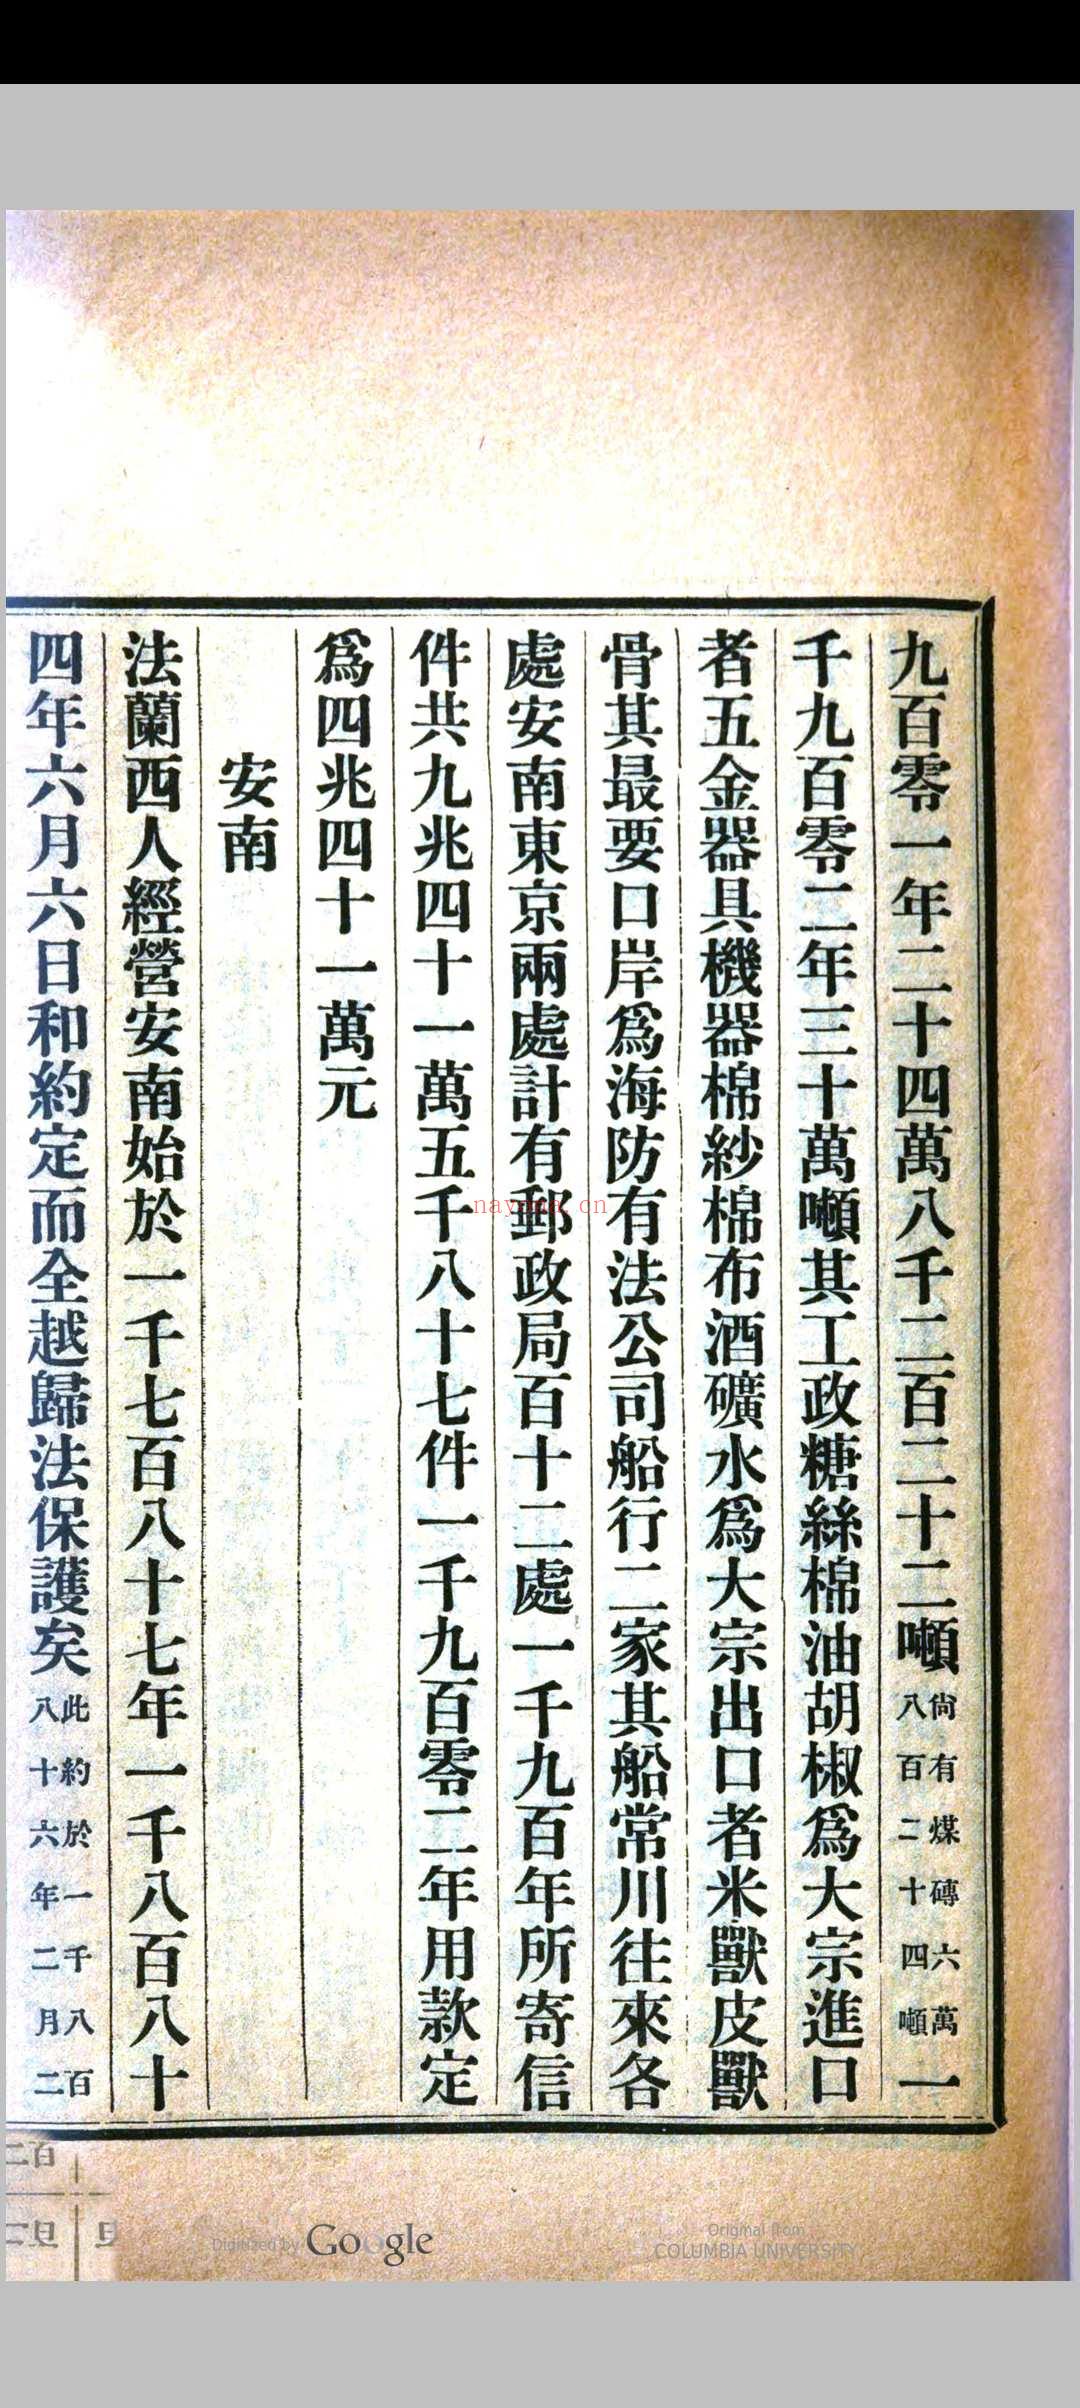 九百零一年二十四萬八千二百二十二噸尙有煤磚六萬八百二十四噸一
千九百零二年三十萬噸其工政糖絲棉油胡椒爲大宗進口
者五金器具機器棉紗棉布酒礦水爲大宗出口者米獸皮獸
骨其最要口岸爲海防有法公司船行二家其船常川往來各
處安南東京兩處計有郵政局百十二處一千九百年所寄信
件共九兆四十一萬五千八十七件一千九百零二年用款定
爲四兆四十一萬元
安南
法蘭西人經營安南始於一千七百八十七年一千八百八十
四年六月六日和約定而全越歸法保護矣此約於一千八百八十六年二月二
nayona.cn
Digitized by Google
Original from
COLUMBIA UNIVERSITY